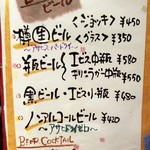 ビール
樽生ビール <ジョッキ> ¥450
<グラス> ¥350
～アサヒスーパードライ～
瓶ビール ヱビス中瓶 ¥580
キリンラガー中瓶 ¥550
黒ビール・ヱビス小瓶 ¥480
ノンアルコールビール ¥420
～アサヒドライゼロ～
BEER COCKTAIL